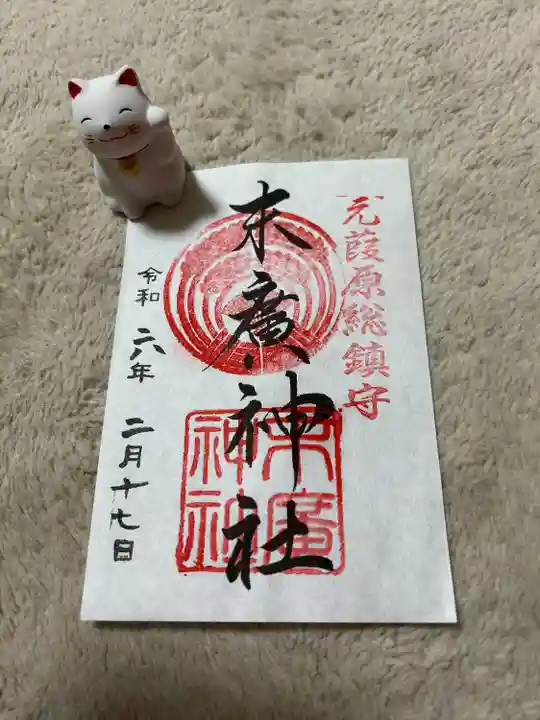 元葭原総鎮守
末廣神社
末廣
神社
令和六年二月十七日